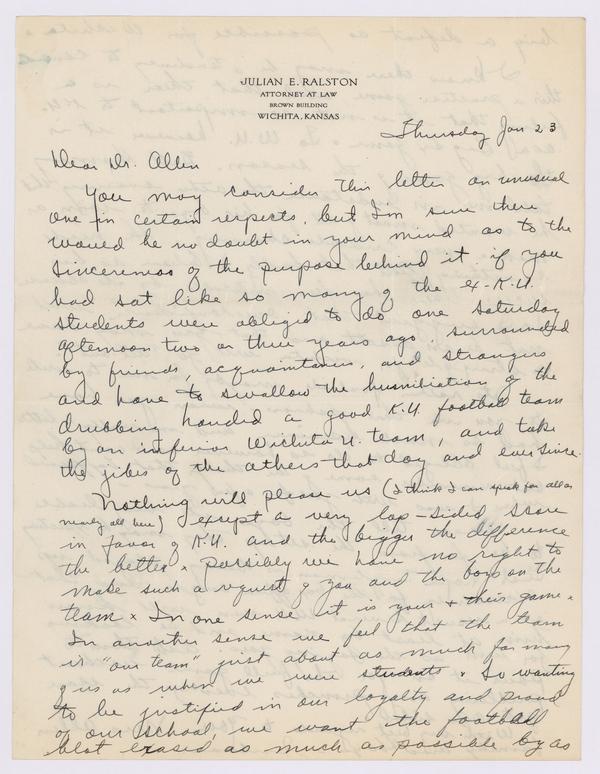 JULIAN E. RALSTON
ATTORNEY AT LAW
BROWN BUILDING
WICHITA, KANSAS
Thursday Jan 23
Dear Dr. Allen
You may consider this letter an unusual
one in certain respects, but I'm sure there
would be no doubt in your mind as to the
sincereness of the purpose behind it if you
had sat like so many of the ex-K.U.
students were obliged to do one Saturday
afternoon two or three years ago, surrounded
by friends, acquaintances, and strangers
and have to swallow the humiliation of the
drubbing handed a good K.U. football team
by an inferior Wichita U. team, and take
the jibes of the others that day and ever since.
Nothing will please us (I think I can speak for all or
nearly all here) except a very lop-sided score
in favor of K.U. and the bigger the difference
the better x possibly we have no right to
make such a request of you and the boys on the
team x In one sense it is your + their game x
In another sense we feel that the team
is "our team" just about as much for many
of us as when we were students x So wanting
to be justified in our loyalty and proud
of our school, we want the football
blot erased as much as possible by as